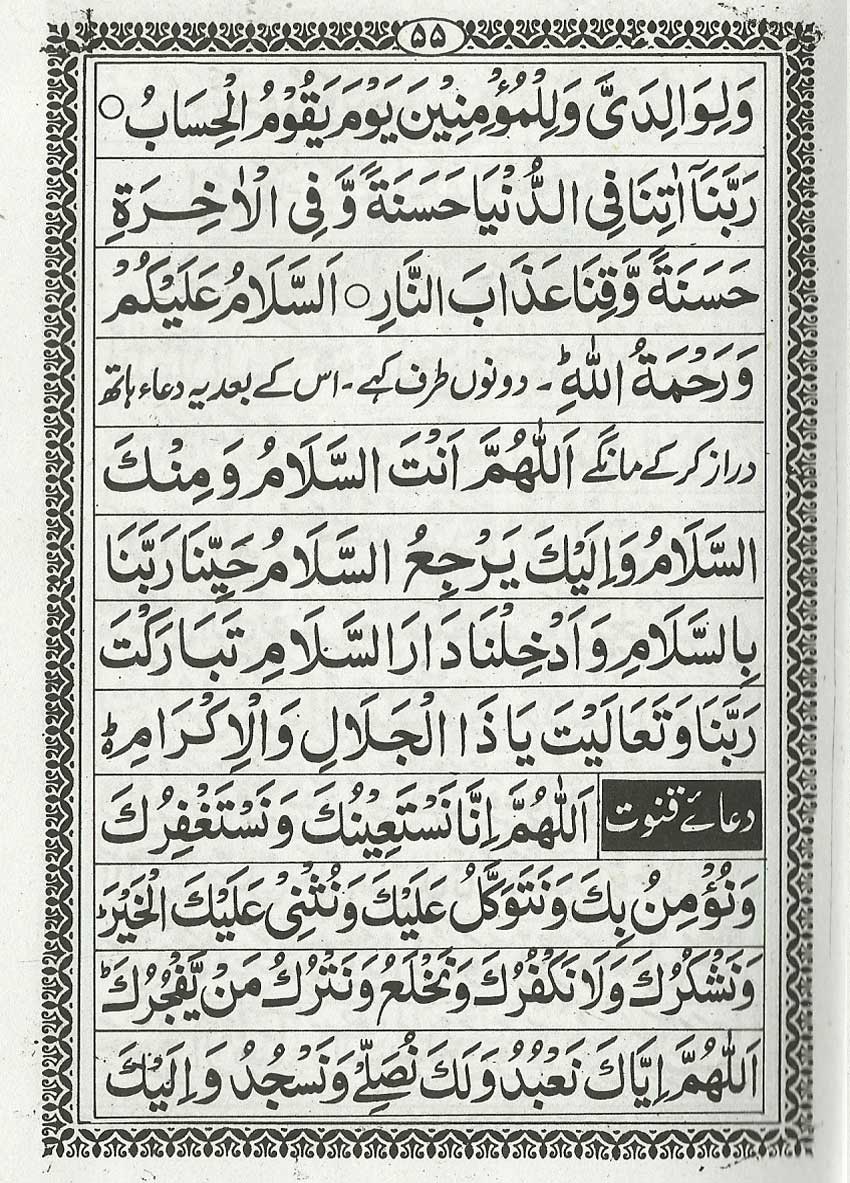 ۵۵
وَلِوَالِدَیَّ وَلِلْمُؤْمِنِیْنَ یَوْمَ یَقُوْمُ الْحِسَابُ ○
رَبَّنَاۤ اٰتِنَا فِی الدُّنْیَا حَسَنَةً وَّ فِی الْاٰخِرَةِ
حَسَنَةً وَّقِنَا عَذَابَ النَّارِ ○ اَلسَّلَامُ عَلَیْکُمْ
وَرَحْمَةُ اللّٰهِؕ ۔ دونوں طرف کہے ۔ اس کے بعد یہ دعاء ہاتھ
دراز کر کے مانگے اَللّٰهُمَّ اَنْتَ السَّلَامُ وَ مِنْكَ
السَّلَامُ وَاِلَیْكَ یَرْجِعُ السَّلَامُ حَیِّنَا رَبَّنَا
بِالسَّلَامِ وَ اَدْخِلْنَا دَارَ السَّلَامِ تَبَارَكْتَ
رَبَّنَا وَ تَعَالَیْتَ یَا ذَا الْجَلَالِ وَالْاِکْرَامِؕ
دعائے قنوت اَللّٰهُمَّ اِنَّا نَسْتَعِیْنُكَ وَ نَسْتَغْفِرُكَ
وَنُؤْمِنُ بِكَ وَ نَتَوَکَّلُ عَلَیْكَ وَ نُثْنِیْ عَلَیْكَ الْخَیْرَؕ
وَ نَشْکُرُكَ وَلَا نَکْفُرُكَ وَ نَخْلَعُ وَ نَتْرُكُ مَنْ یَّفْجُرُكَؕ
اَللّٰهُمَّ اِیَّاكَ نَعْبُدُ وَلَكَ نُصَلِّیْ وَ نَسْجُدُ وَ اِلَیْكَ